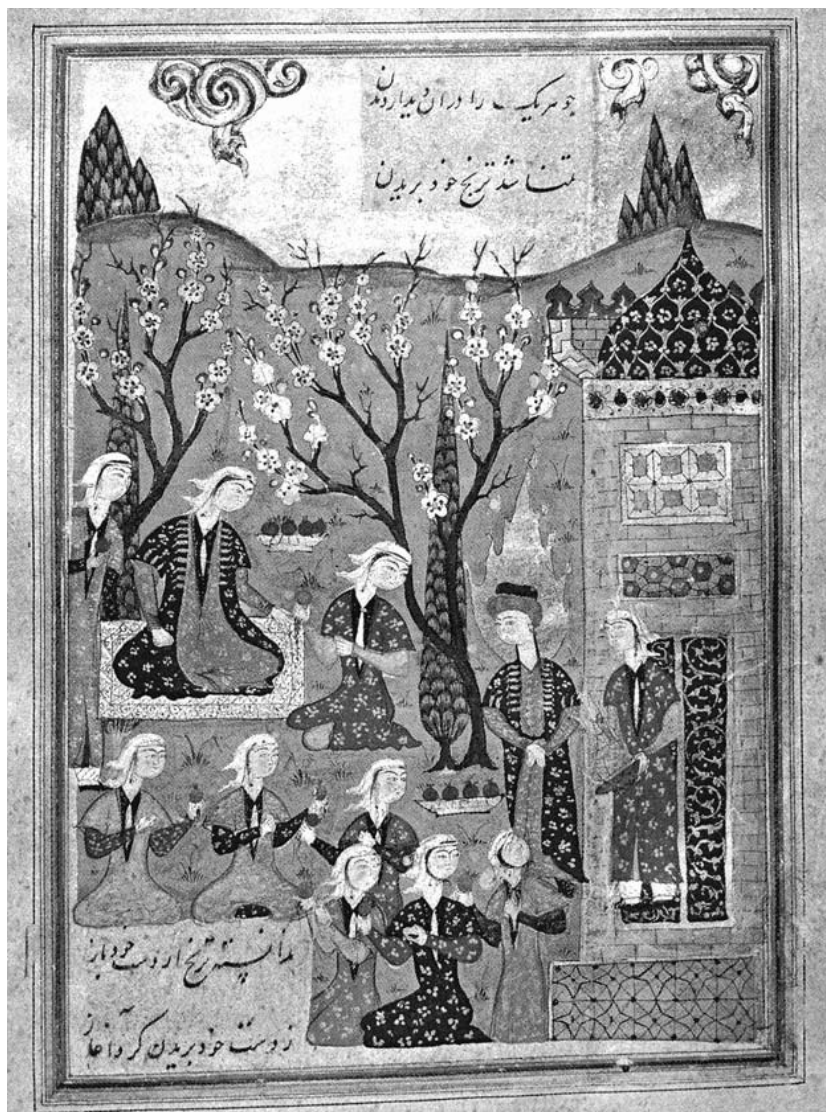 چو هریک را در آن دیدار دیدن
تمنا شد ترنج خود بریدن
ندانسته ترنج از دست خود باز
ز دست خود بریدن کرد آغاز